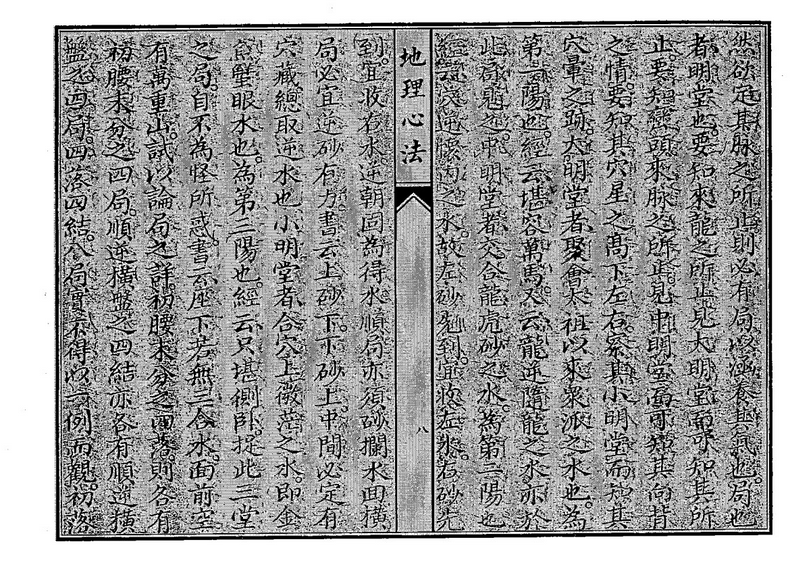 然欲定其脉之所止則必有局以涵養其氣也局也
者明堂也要知來龍之所止見大明堂而可知其所
止要知到頭來脉之所止見中明堂而可知其向背
之情要知其穴星之高下左右察其小明堂而知其
穴暈之跡大明堂者聚會太祖以來衆派之水也為
第一陽也經云堪容萬馬又云龍逆隨龍之水亦於
此為剋也中明堂者交合龍虎砂之水為第二陽也
經云逆腰內之水故左砂先到宜收左水右砂先
地理心法
八
到宜收右水逆朝回為得水順局亦須砂攔水面橫
局必宜逆砂有力書云上砂下下砂上中間必定有
穴藏總取逆水也小明堂者合穴上微茫之水即金
魚蟹眼水也為第三陽也經云只堪側卧捉此三堂
之勾自不為怪所惑書云座下若無三合水面前空
有萬重山試以論局之詳初腰末分之四落則各有
初腰末分之四局順逆橫盤之四結亦各有順逆橫
盤之四局四落四結八局實不得以一例而觀初落